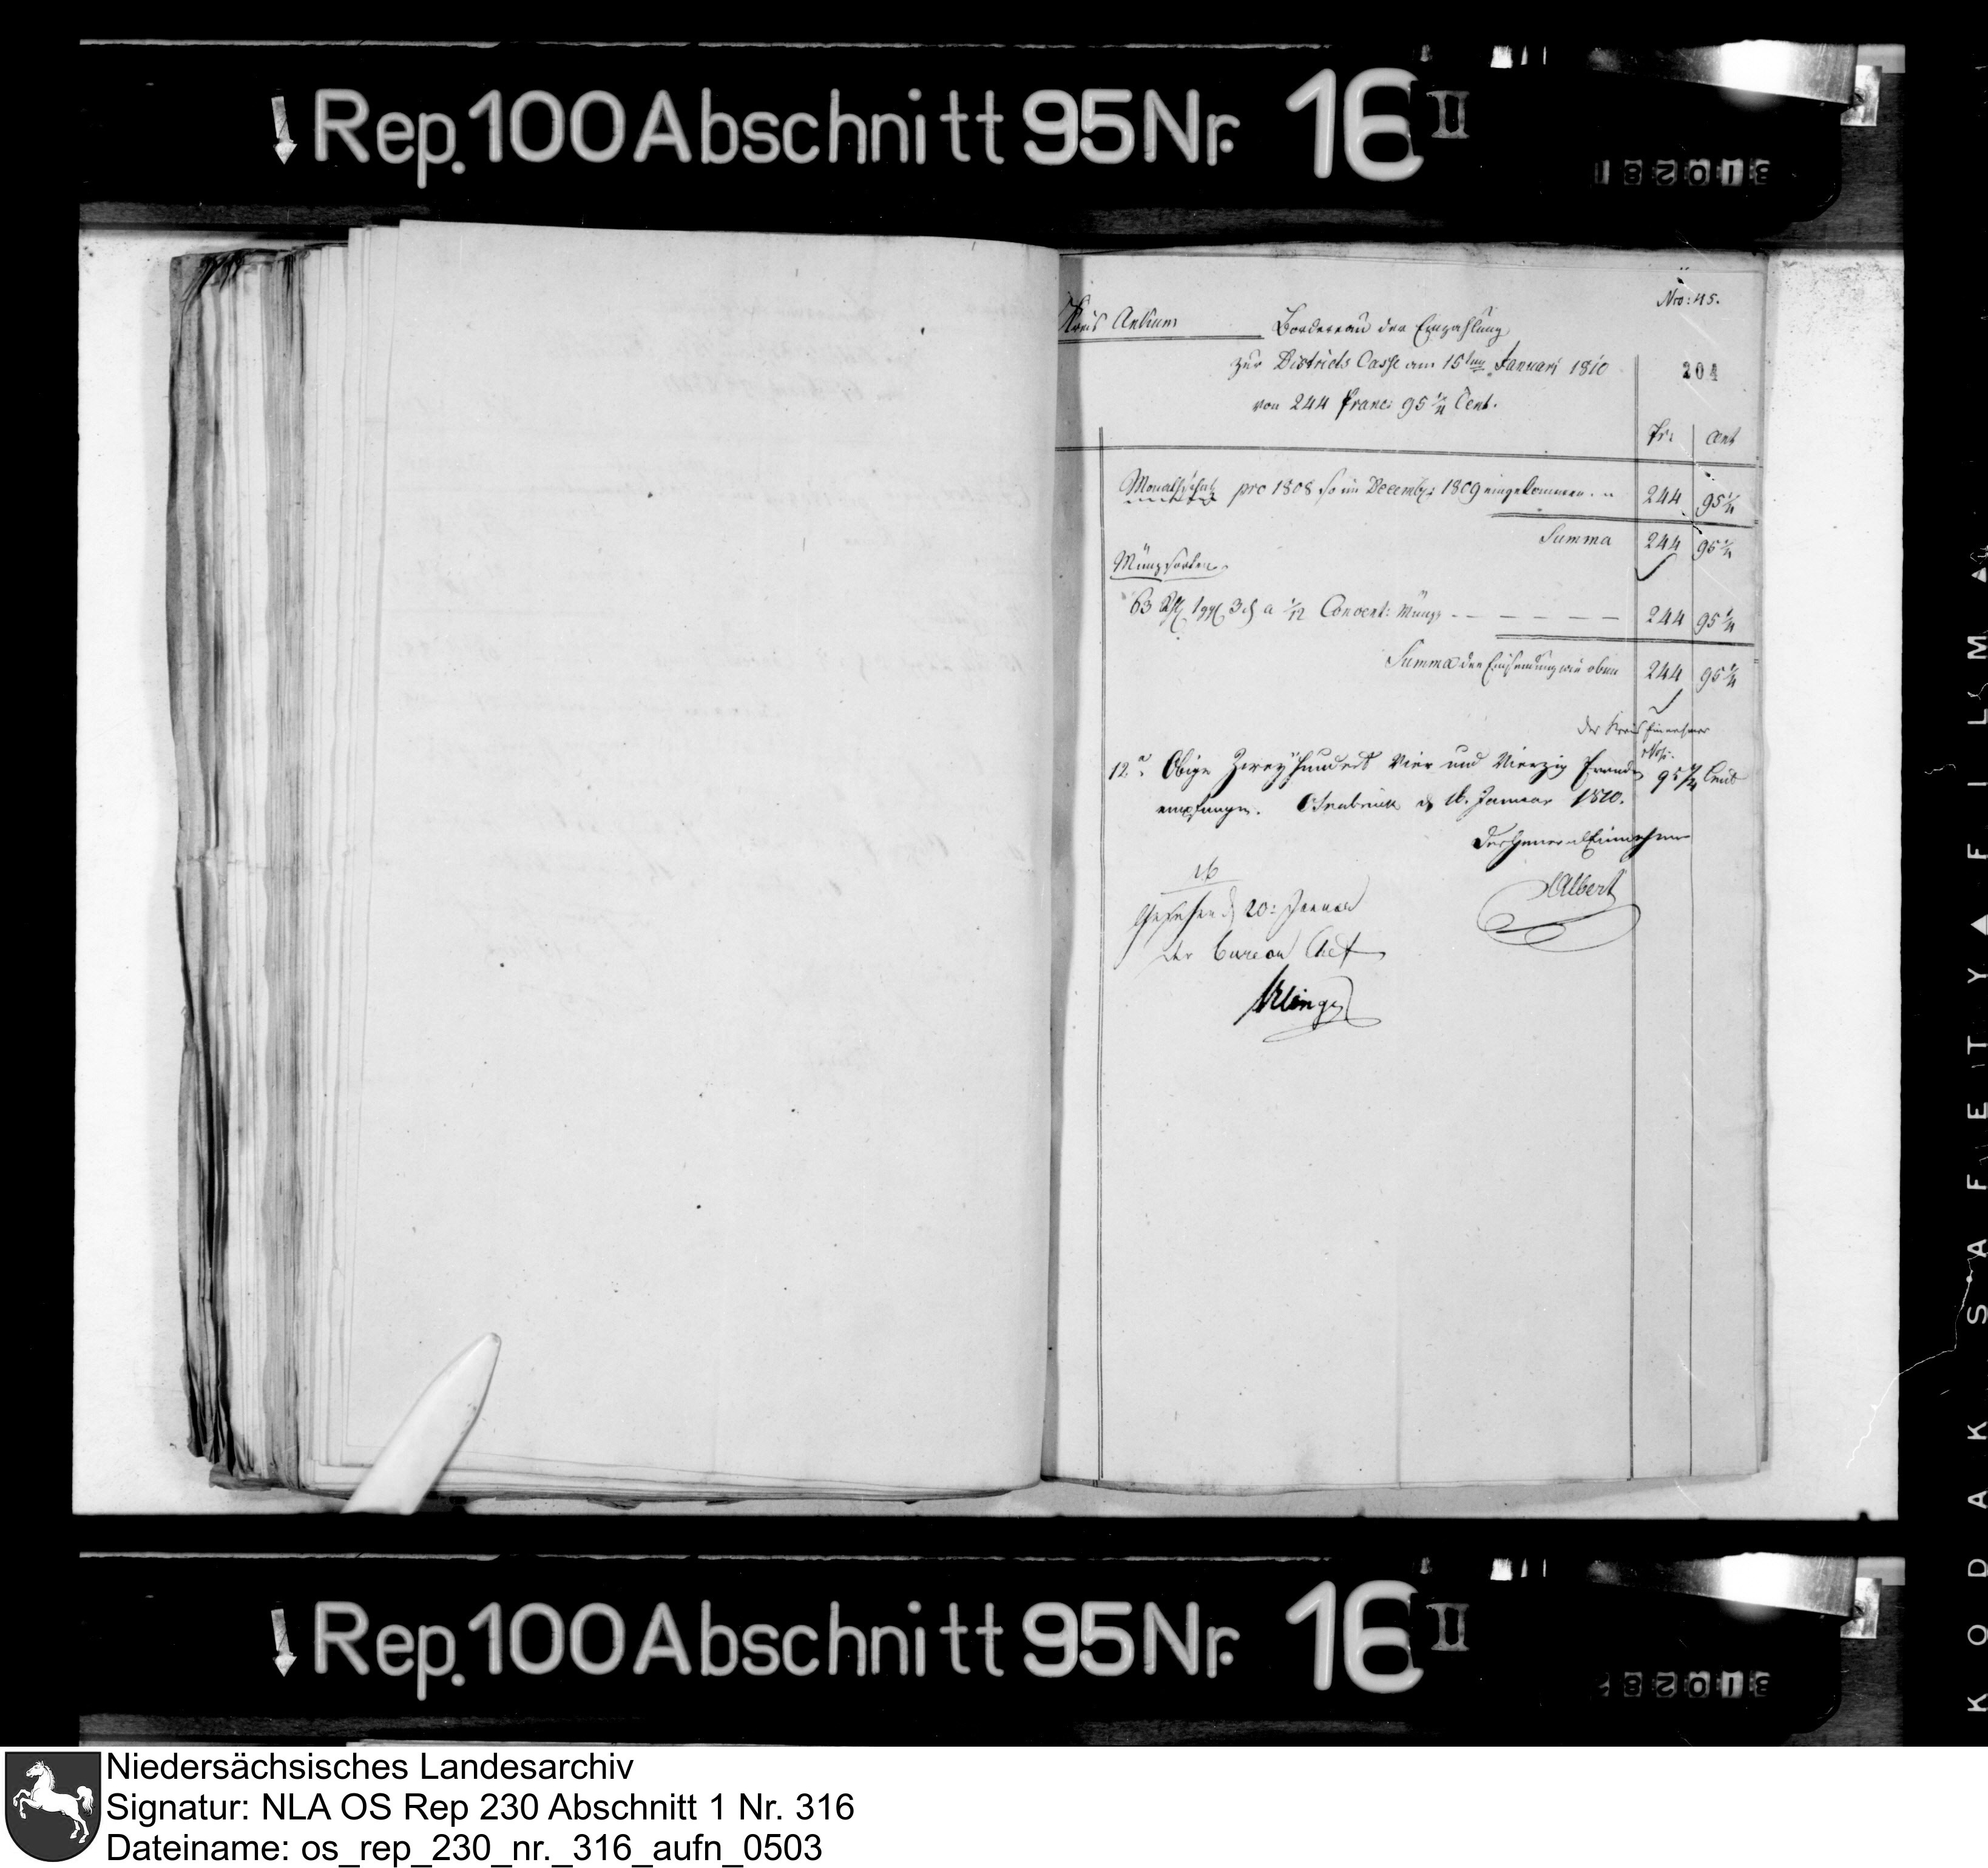 Rep. 100 Abschnitt 95 Nr. 16 II
182013
Nro: 45.
Kreis Ankum
Bordereau der Einzahlung
zur Districts Casse am 15ten Januari 1810
204
von 244 Franc: 95 1/4 Cent.
Fr: Cent
Monathschatz pro 1808 so im Decembr: 1809 eingekommen. 244 95 1/4
Summa 244 95 1/4
Münzsorten
63 Rthl 1 ggl 3 d a 1/12 Convent: Münze - - - - - 244 95 1/4
Summa der Einsendung wie oben 244 95 1/4
der Kreis Einnehmer
12. Obige Zweyhundert Vier und Vierzig Franken 95 1/4 Cent
empfangen. Osnabrück d 16. Januar 1810.
Der General Einnehmer
Albert
16
Gesehen d 20: Januar
der Bureau Chef
Klinge
Rep. 100 Abschnitt 95 Nr. 16 II
KODAK SAFETY FILM
Niedersächsisches Landesarchiv
Signatur: NLA OS Rep 230 Abschnitt 1 Nr. 316
Dateiname: os_rep_230_nr._316_aufn_0503